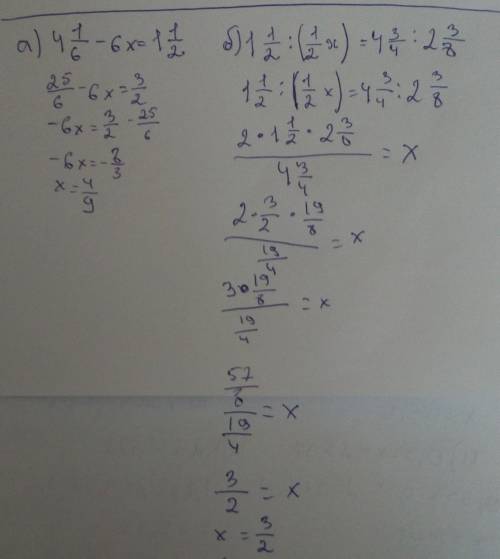 а) 4 1/6 - 6x = 1 1/2
25/6 - 6x = 3/2
-6x = 3/2 - 25/6
-6x = -8/3
x = 4/9
б) 1 1/2 : (1/2 x) = 4 3/4 : 2 3/8
1 1/2 : (1/2 x) = 4 3/4 : 2 3/8
(2 · 1 1/2 · 2 3/8) / (4 3/4) = x
(2 · 3/2 · 19/8) / (19/4) = x
(3 · 19/8) / (19/4) = x
(57/8) / (19/4) = x
3/2 = x
x = 3/2